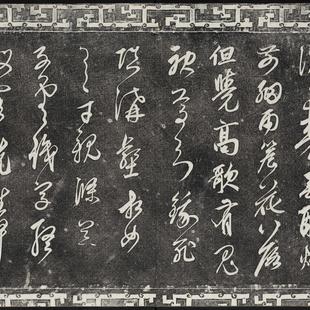 春酌燈
前細雨簷花落
但覺高歌有鬼
神焉知餓死
填溝壑相如
逸才親滌器
子雲識字終
投閣先生早